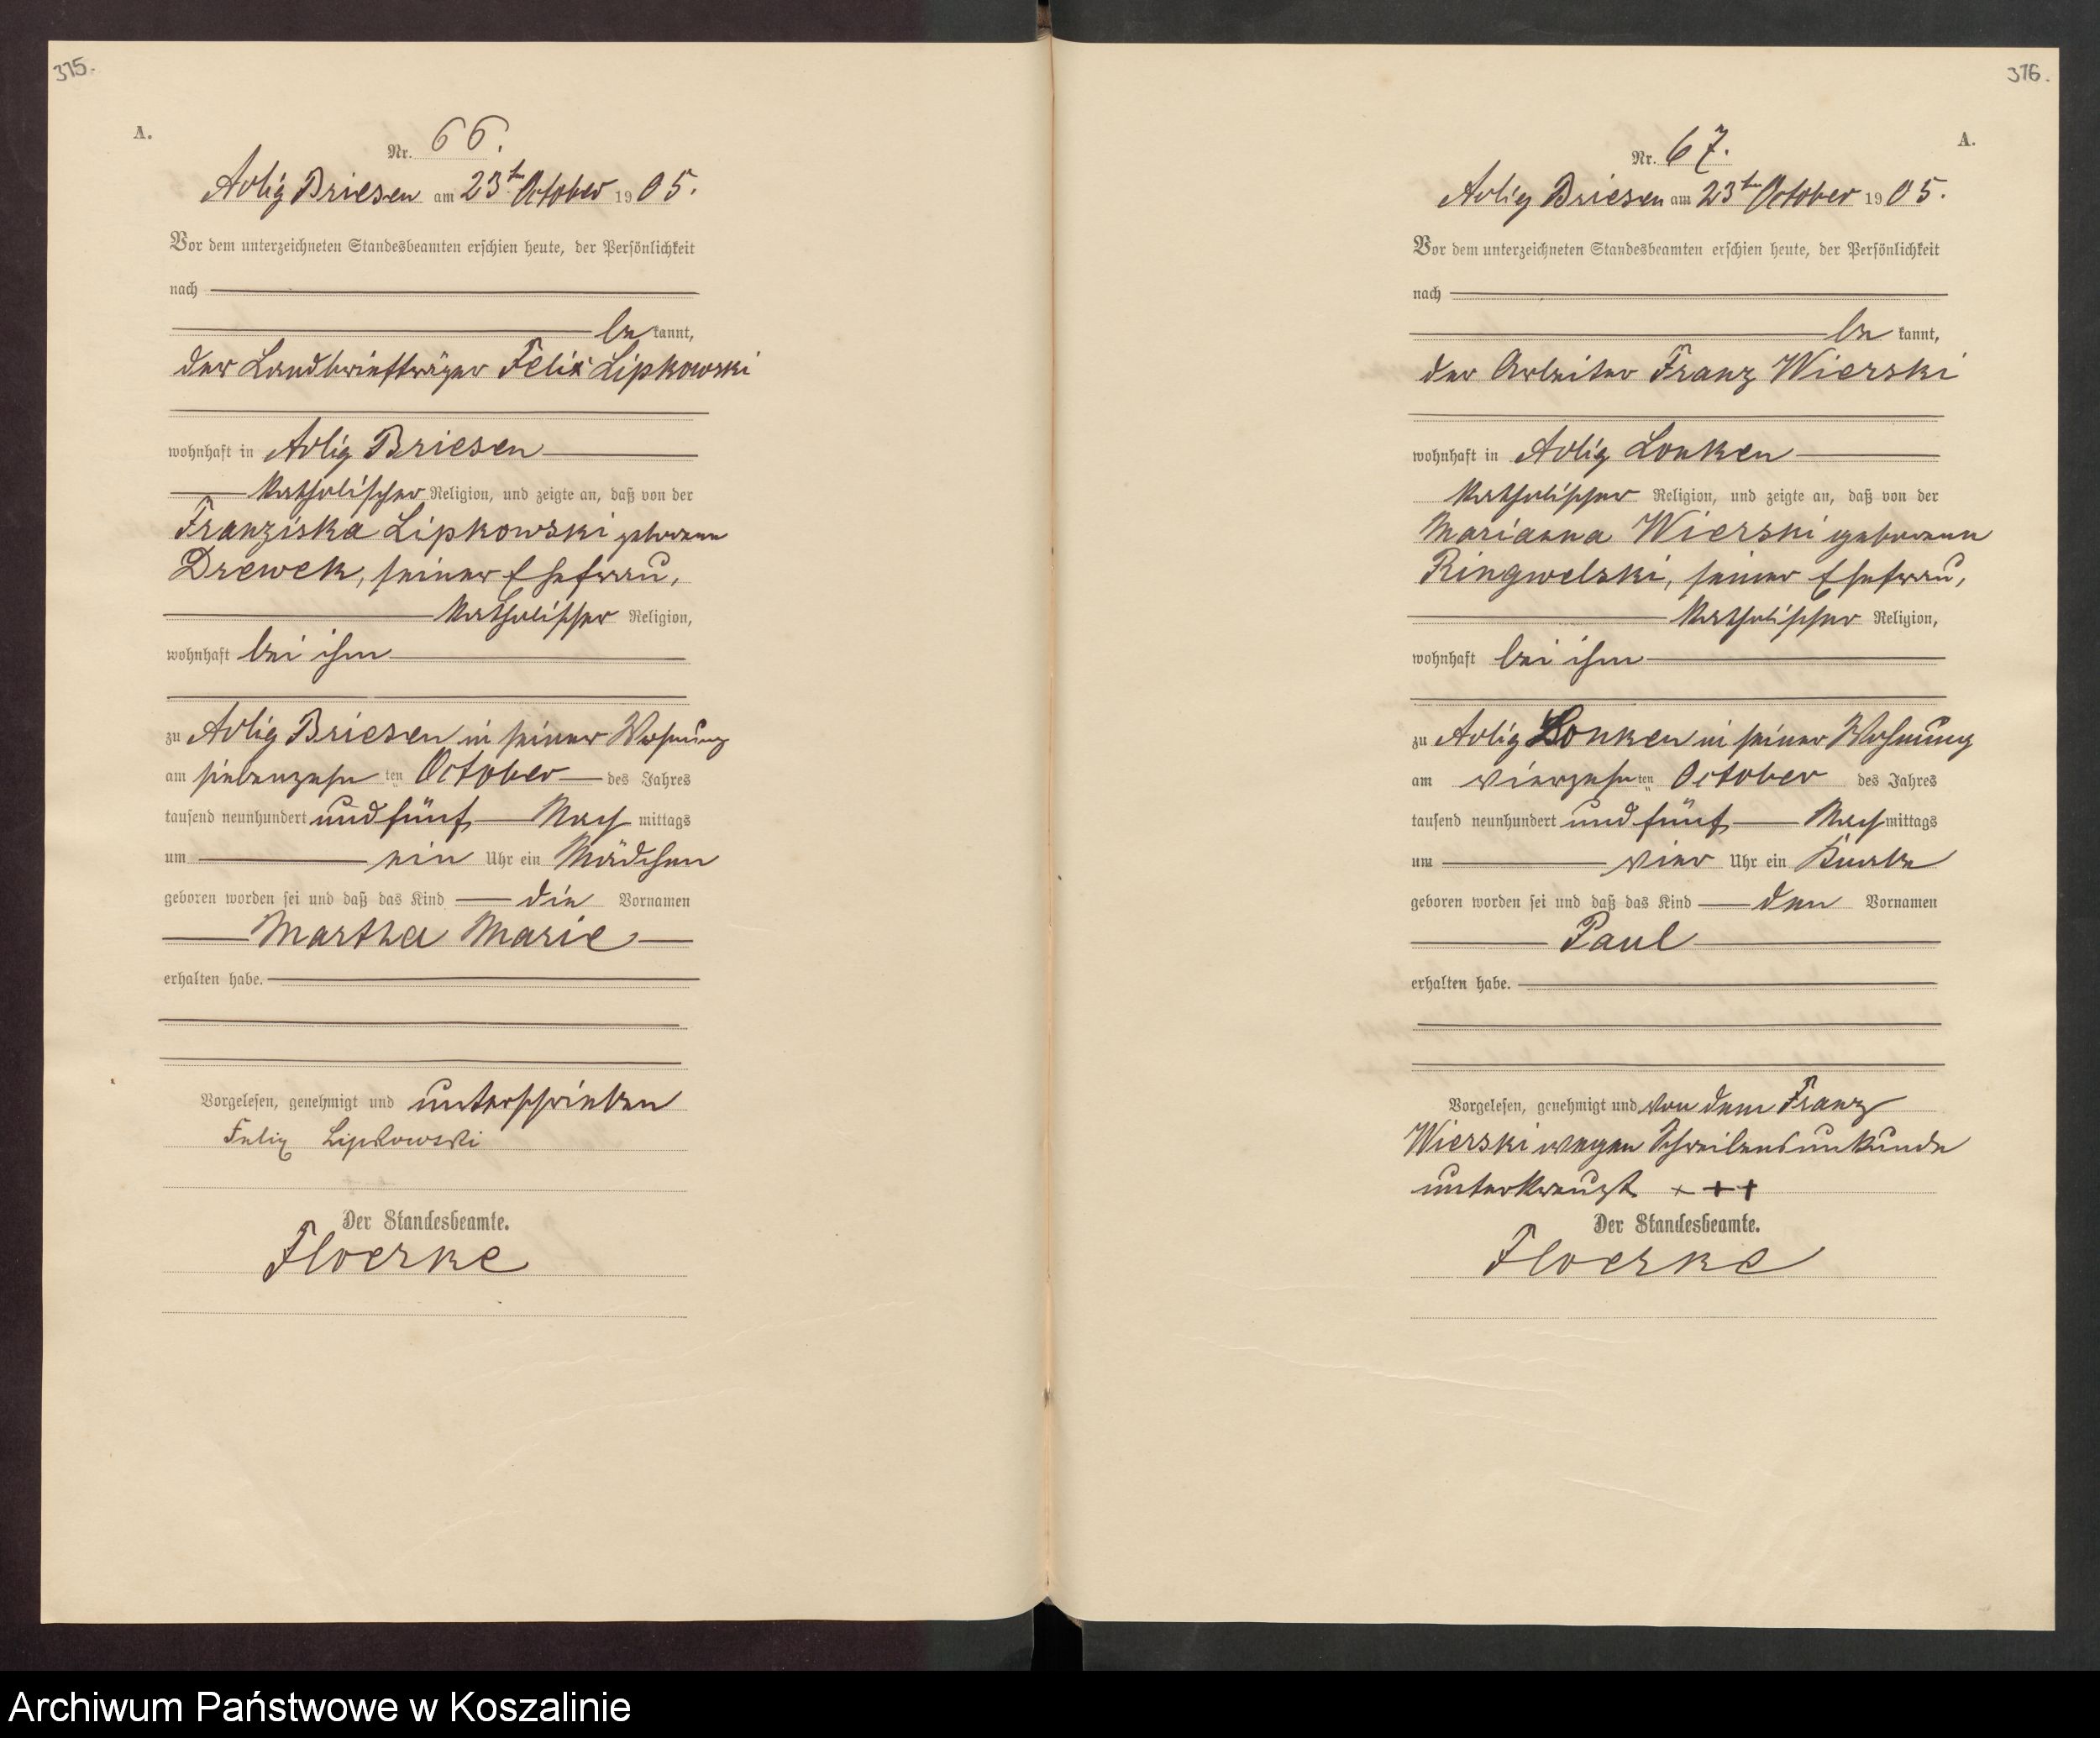 315.
A.
Nr. 66.
Adlig Briesen am 23ten October 1905.
Vor dem unterzeichneten Standesbeamten erschien heute, der Persönlichkeit
nach
be kannt,
der Landbriefträger Felix Lipkowski
wohnhaft in Adlig Briesen
katholischer Religion, und zeigte an, daß von der
Franziska Lipkowski geborenen
Drewek, seiner Ehefrau,
katholischer Religion,
wohnhaft bei ihm
zu Adlig Briesen in seiner Wohnung
am siebenzehn ten October des Jahres
tausend neunhundert und fünf Nach mittags
um ein Uhr ein Mädchen
geboren worden sei und daß das Kind die Vornamen
Martha Marie
erhalten habe.
Vorgelesen, genehmigt und unterschrieben
Felix Lipkowski
Der Standesbeamte.
Floerke
316.
A.
Nr. 67.
Adlig Briesen am 23ten October 1905.
Vor dem unterzeichneten Standesbeamten erschien heute, der Persönlichkeit
nach
be kannt,
der Arbeiter Franz Wierski
wohnhaft in Adlig Lonken
katholischer Religion, und zeigte an, daß von der
Marianna Wierski geborenen
Ringwelski, seiner Ehefrau,
katholischer Religion,
wohnhaft bei ihm
zu Adlig Lonken in seiner Wohnung
am vierzehn ten October des Jahres
tausend neunhundert und fünf Nach mittags
um vier Uhr ein Knabe
geboren worden sei und daß das Kind den Vornamen
Paul
erhalten habe.
Vorgelesen, genehmigt und von dem Franz
Wierski wegen Schreibensunkunde
unterkreuzt + + +
Der Standesbeamte.
Floerke
Archiwum Państwowe w Koszalinie